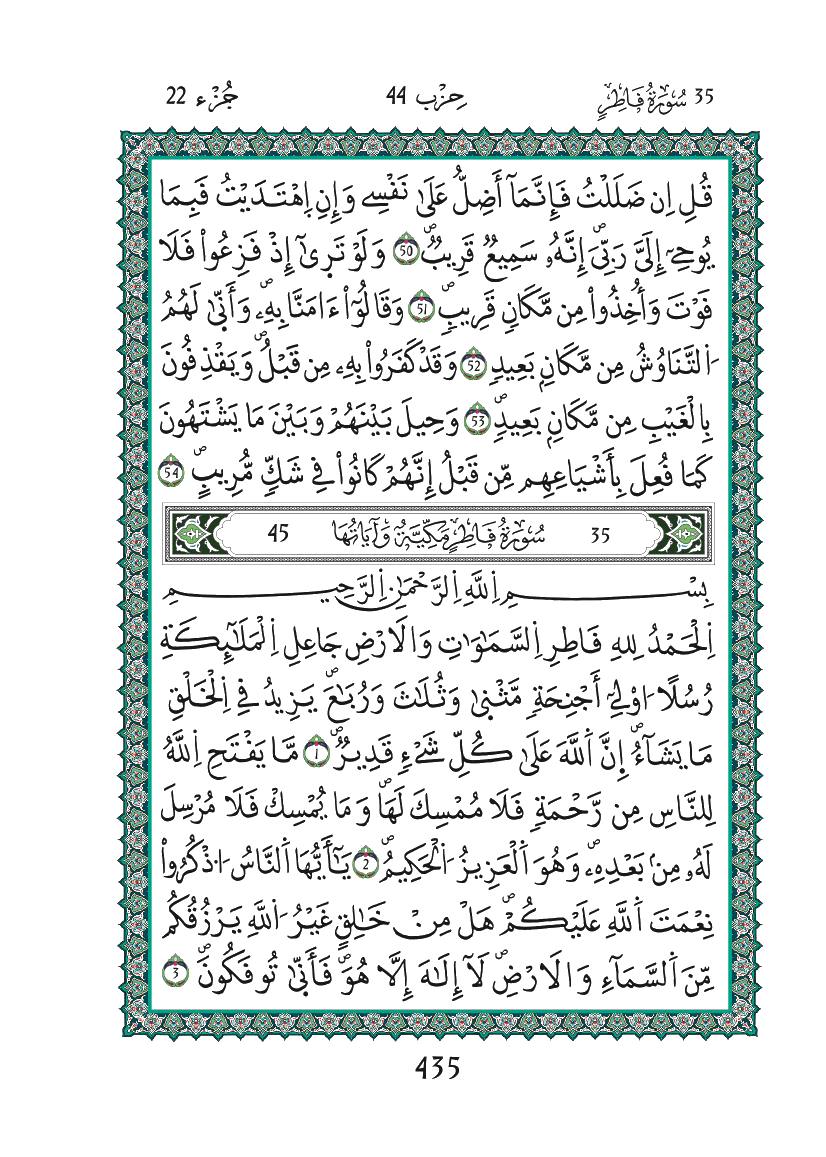 35 سُورَةُ فَاطِرٍ
حِزْب 44
جُزْء 22
قُلِ اِن ضَلَلْتُ فَإِنَّمَآ أَضِلُّ عَلَىٰ نَفْسِے وَإِنِ اِهْتَدَيْتُ فَبِمَا
يُوحِےٓ إِلَيَّ رَبِّيَۖ إِنَّهُۥ سَمِيعٌ قَرِيبٌۖ 50 وَلَوْ تَرِىٰٓ إِذْ فَزِعُواْ فَلَا
فَوْتَ وَأُخِذُواْ مِن مَّكَانٍ قَرِيبٍۖ 51 وَقَالُوٓاْ ءَامَنَّا بِهِۦۖ وَأَنّىٰ لَهُمُ
اُلتَّنَاوُشُ مِن مَّكَانِۢ بَعِيدٍ 52 وَقَدْ كَفَرُواْ بِهِۦ مِن قَبْلُۖ وَيَقْذِفُونَ
بِالْغَيْبِ مِن مَّكَانِۢ بَعِيدٍۖ 53 وَحِيلَ بَيْنَهُمْ وَبَيْنَ مَا يَشْتَهُونَ
كَمَا فُعِلَ بِأَشْيَاعِهِم مِّن قَبْلُ إِنَّهُمْ كَانُواْ فِے شَكٍّ مُّرِيبٍۖ 54
35 سُورَةُ فَاطِرٍ مَكِّيَّةٌ وَآيَاتُهَا 45
بِسْمِ اِللَّهِ اِلرَّحْمَٰنِ اِلرَّحِيمِ
اِلْحَمْدُ لِلهِ فَاطِرِ اِلسَّمَٰوَٰتِ وَالَارْضِ جَاعِلِ اِلْمَلَٰٓئِكَةِ
رُسُلًا اوْلِےٓ أَجْنِحَةٖ مَّثْنىٰ وَثُلَٰثَ وَرُبَٰعَۖ يَزِيدُ فِے اِلْخَلْقِ
مَا يَشَآءُ إِنَّ اَللَّهَ عَلَىٰ كُلِّ شَےْءٖ قَدِيرٌۖ 1 مَّا يَفْتَحِ اِللَّهُ
لِلنَّاسِ مِن رَّحْمَةٖ فَلَا مُمْسِكَ لَهَاۖ وَمَا يُمْسِكْ فَلَا مُرْسِلَ
لَهُۥ مِنۢ بَعْدِهِۦۖ وَهُوَ اَلْعَزِيزُ اُلْحَكِيمُۖ 2 يَٰٓأَيُّهَا اَلنَّاسُ اُذْكُرُواْ
نِعْمَتَ اَللَّهِ عَلَيْكُمْۖ هَلْ مِنْ خَٰلِقٍ غَيْرُ اُللَّهِ يَرْزُقُكُم
مِّنَ اَلسَّمَآءِ وَالَارْضِۖ لَآ إِلَٰهَ إِلَّا هُوَۖ فَأَنّىٰ تُوفَكُونَۖ 3
435